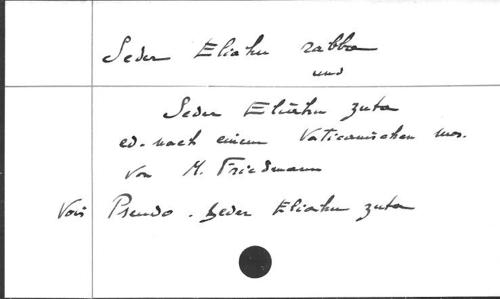 Seder Eliahu rabba
und
Seder Eliahu zuta
ed. nach einem Vaticanischen mss.
von M. Friedmann
Vois Pseudo. Seder Eliahu zuta